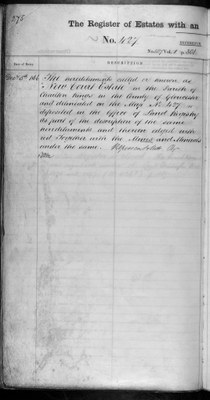 275
The Register of Estates with an
No. 427
REFERENCE
No. 427 Vol. 1 p. 301
Date of Entry.
DESCRIPTION.
The hereditaments called or known as
New Court Estate in the Parish of
Kings in the County of Gloucester
and delineated on the Map No. 427
deposited in the Office of Land Registry
as part of the description of the same
hereditaments and thereon edged
red Together with the Mines and Minerals
under the same.